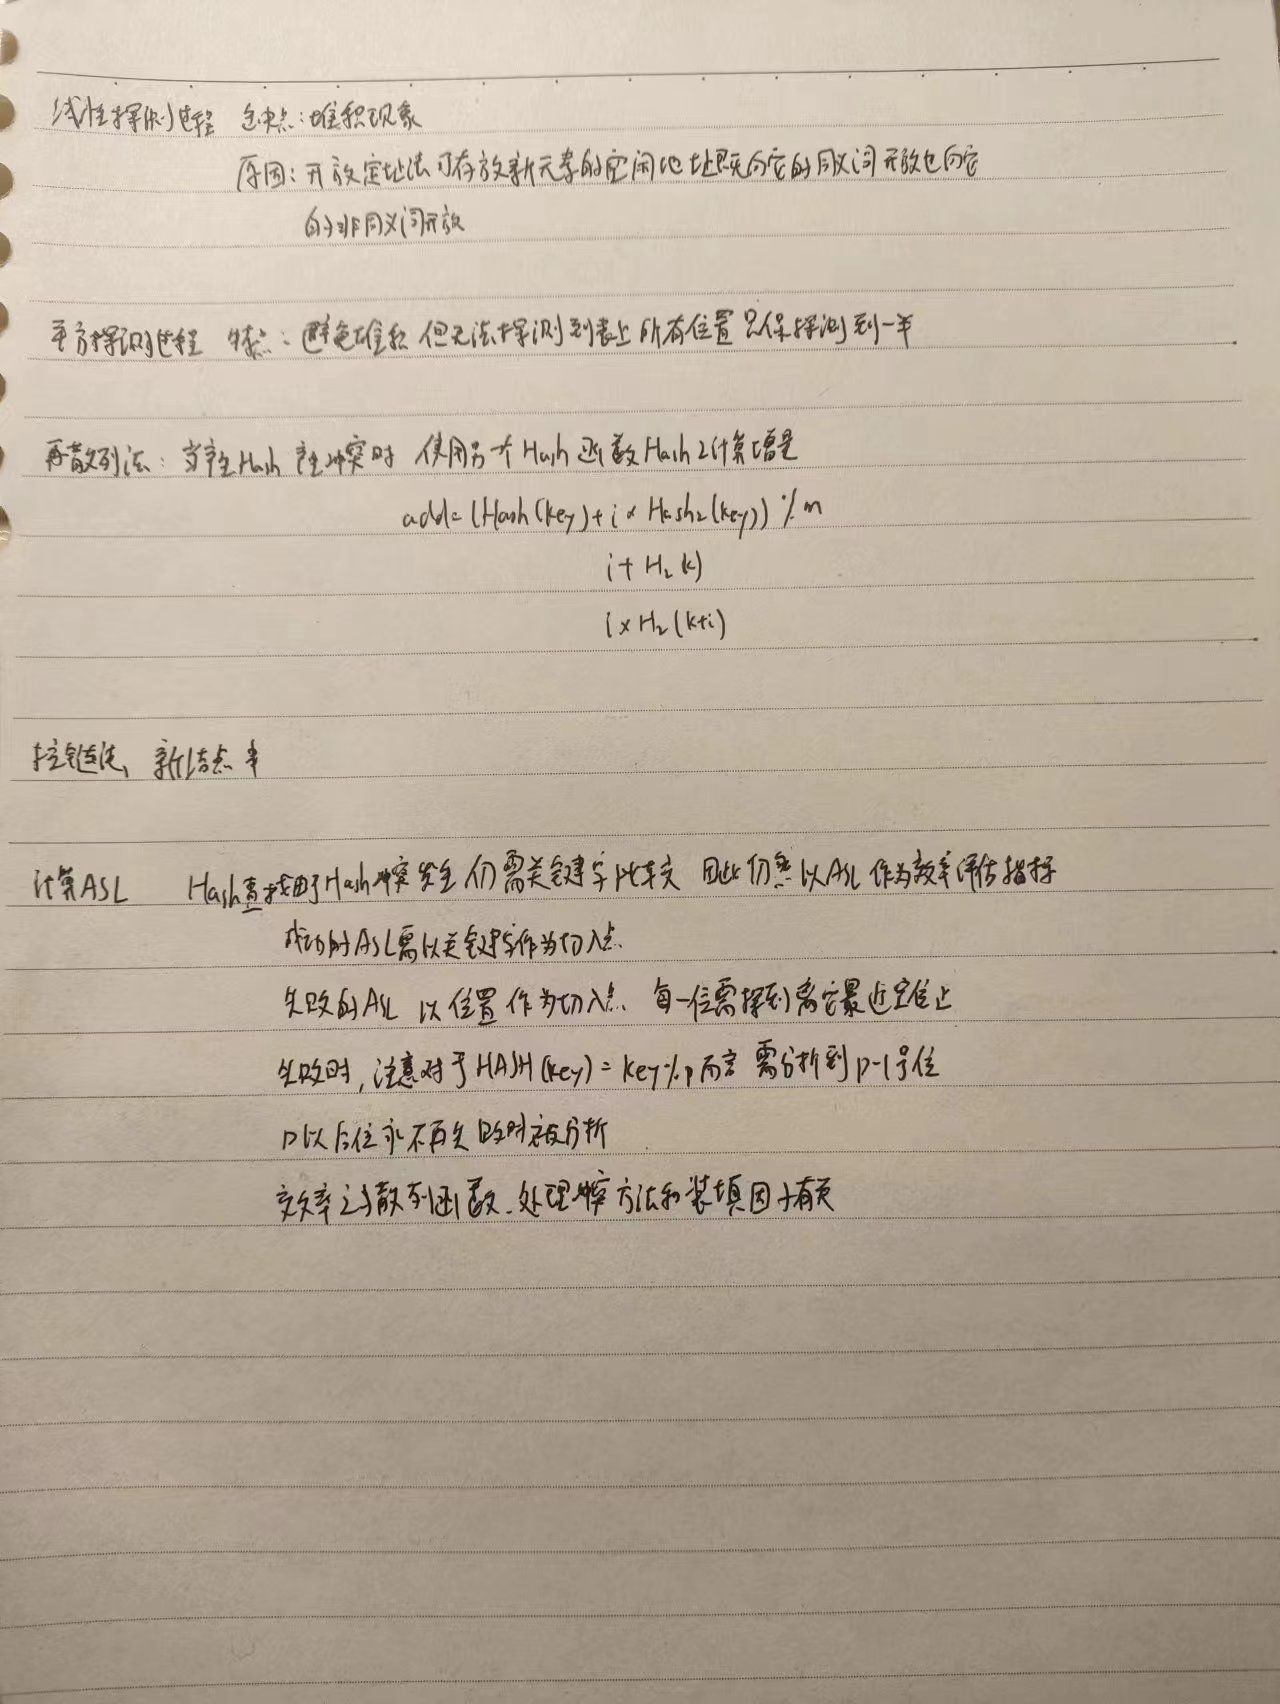 线性探测过程 缺点：堆积现象
原因：开放定址法可存放新元素的空闲地址既向它的同义词开放也向它
的非同义词开放
平方探测过程 特点：避免堆积 但无法探测到表上所有位置 只保探测到一半
再散列法：当产生Hash 产生冲突时 使用另一个Hash函数Hash2计算增量
add=(Hash(key)+i×Hash2(key))%m
i+H2(k)
i×H2(k+i)
拉链法、新结点
计算ASL Hash查找由于Hash冲突发生 仍需关键字比较 因此仍然以ASL作为效率评估指标
成功的ASL需以关键字作为切入点.
失败的ASL 以位置作为切入点. 每一位需探到离它最近空位止
失败时,注意对于HASH(key)=key%p而言 需分析到p-1号位
p以后位 不再失败时被分析
效率与散列函数、处理冲突方法和装填因子有关